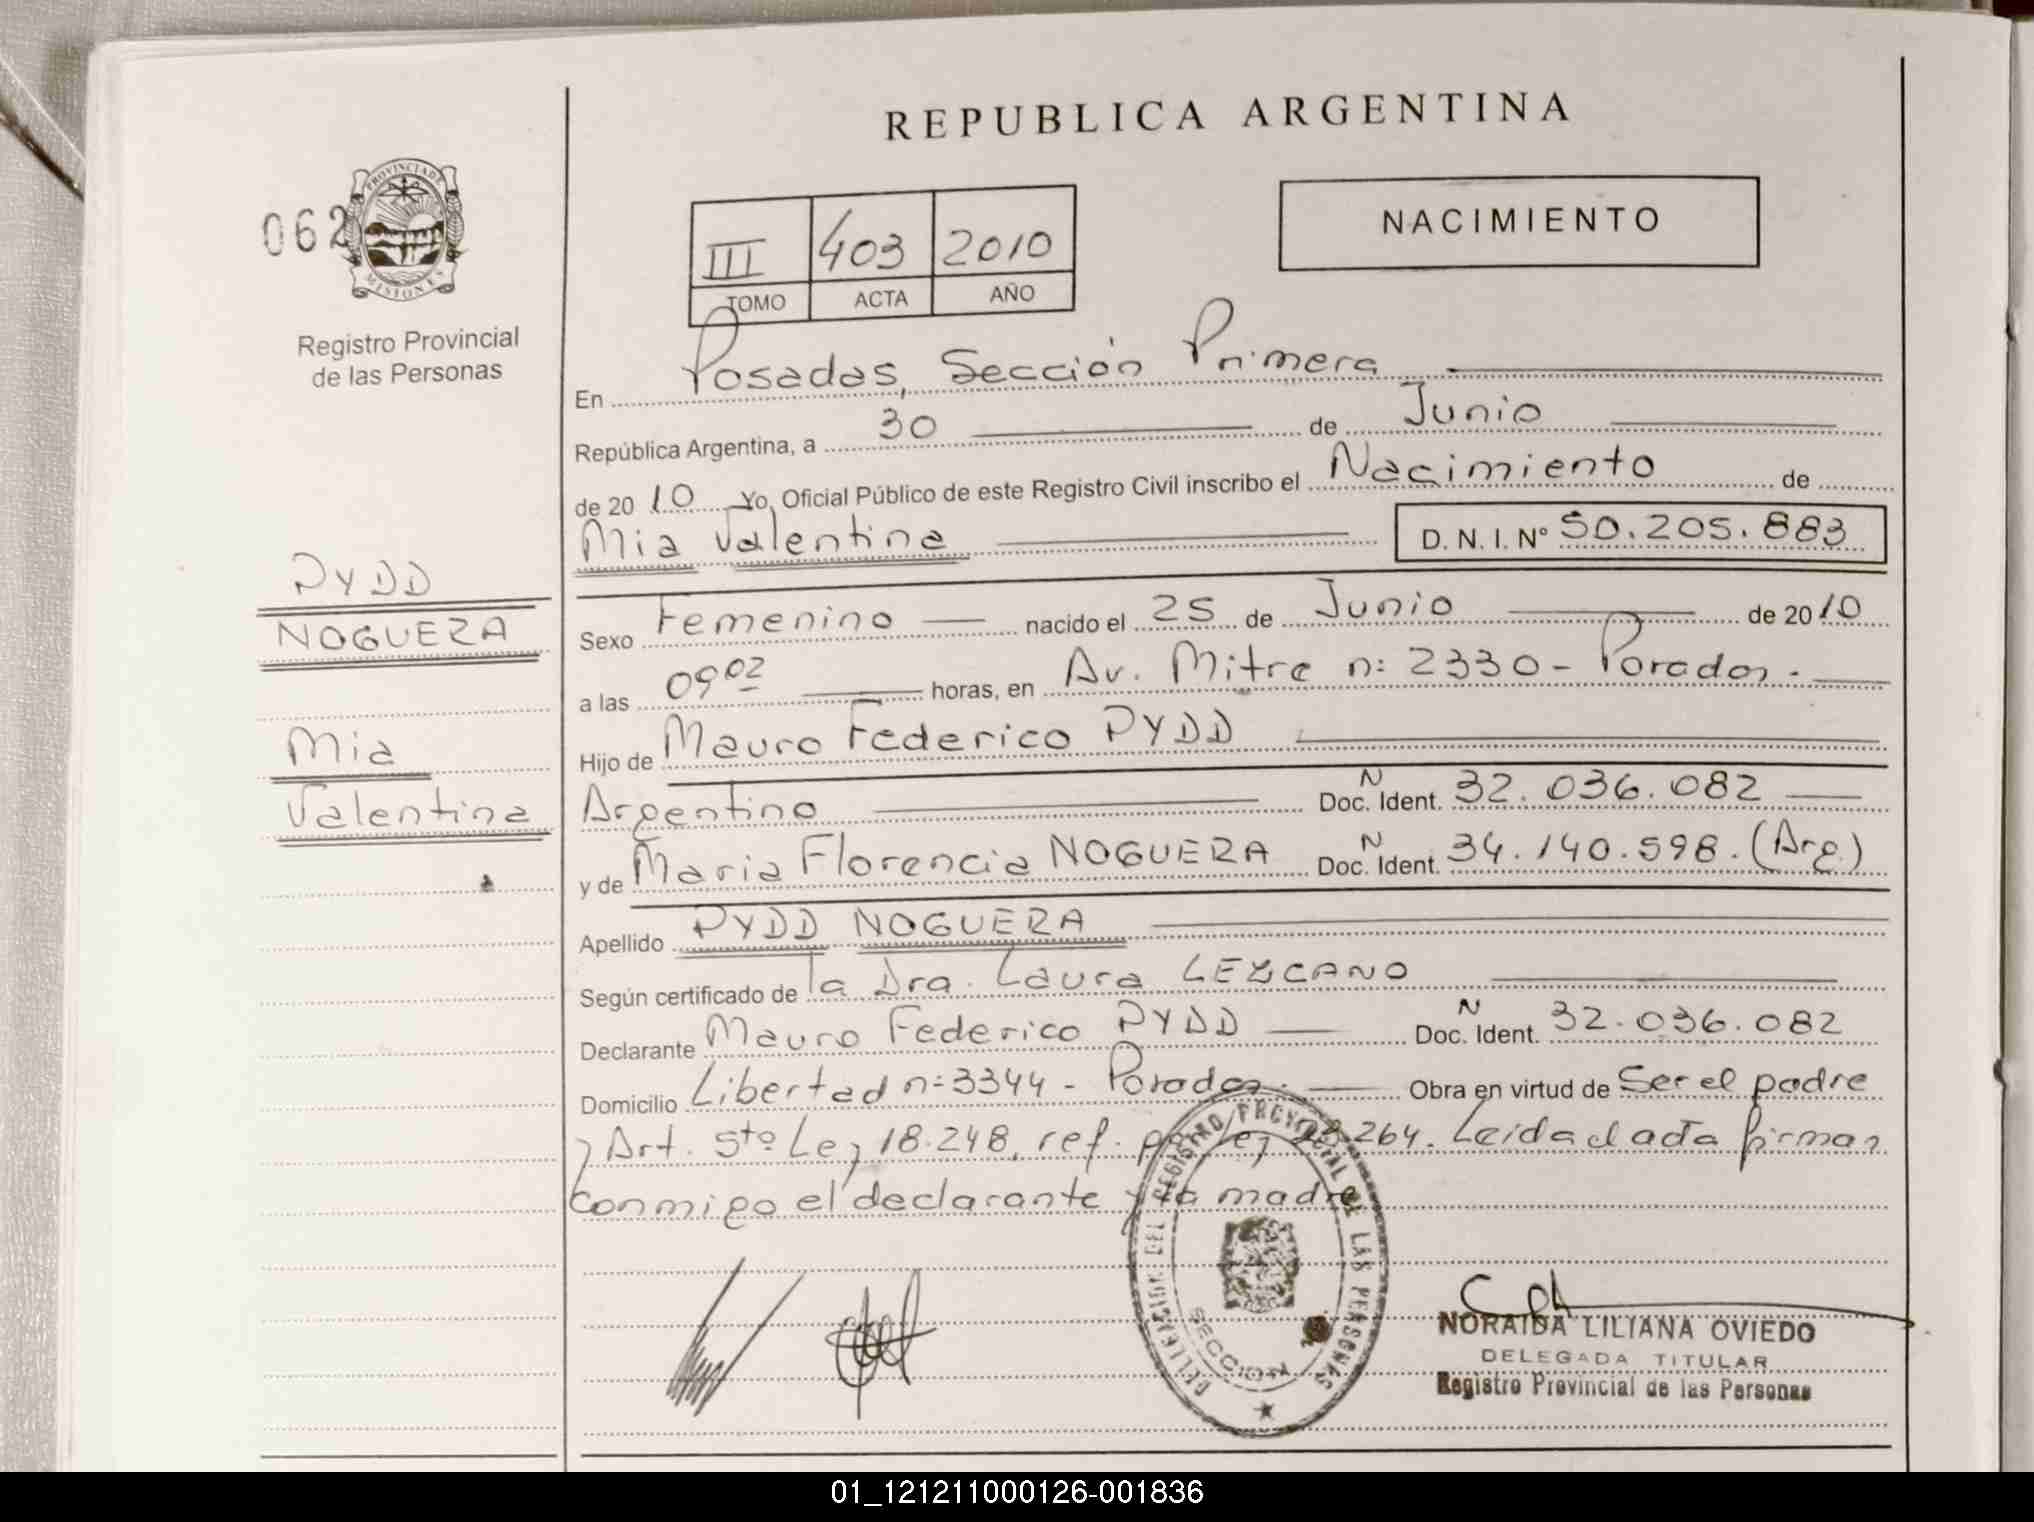 REPUBLICA ARGENTINA
062
PROVINCIA DE
MISIONES
Registro Provincial
de las Personas
III 403 2010
TOMO ACTA AÑO
NACIMIENTO
En Posadas, Sección Primera
República Argentina, a 30 de Junio
de 2010 Yo, Oficial Público de este Registro Civil inscribo el Nacimiento de
Mia Valentina D. N. I. Nº 50.205.883
PYDD
NOGUERA
Mia
Valentina
Sexo Femenino nacido el 25 de Junio de 2010
a las 09 02 horas, en Av. Mitre n: 2330 - Posadas.
Hijo de Mauro Federico PYDD
Argentino N Doc. Ident. 32.036.082
y de Maria Florencia NOGUERA N Doc. Ident. 34.140.598. (Arg.)
Apellido PYDD NOGUERA
Según certificado de la Dra. Laura LEZCANO
Declarante Mauro Federico PYDD N Doc. Ident. 32.036.082
Domicilio Libertad n: 3344 - Posadas. Obra en virtud de Ser el padre
y Art. 5to Ley 18.248, ref. por Ley 23.264. Leida el acta firman
conmigo el declarante y la madre
DELEGACION DEL REGISTRO PROVINCIAL DE LAS PERSONAS
SECCION
NORAIDA LILIANA OVIEDO
DELEGADA TITULAR
Registro Provincial de las Personas
01_121211000126-001836